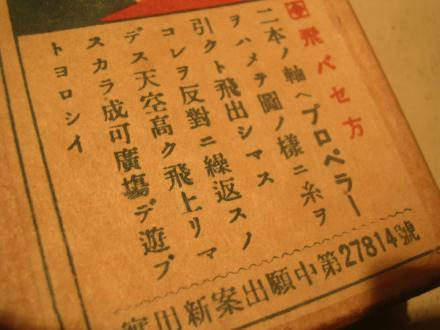 飛バセ方
二本ノ軸ヘプロペラー
ヲハメテ圖ノ樣ニ糸ヲ
引クト飛出シマス
コレヲ反對ニ繰返スノ
デス天空高ク飛上リマ
スカラ成可廣塲デ遊ブ
トヨロシイ
實用新案出願中第27814號